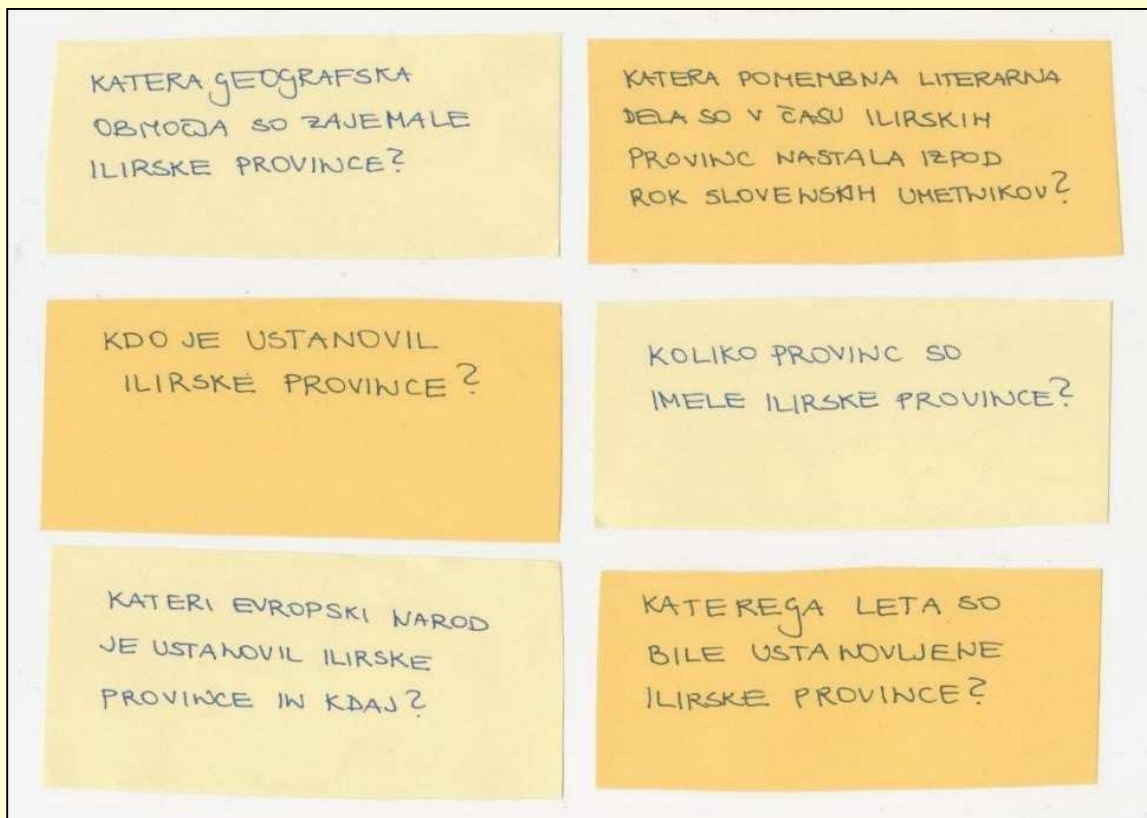 KATERA GEOGRAFSKA
OBMOČJA SO ZAJEMALE
ILIRSKE PROVINCE?
KATERA POMEMBNA LITERARNA
DELA SO V ČASU ILIRSKIH
PROVINC NASTALA IZPOD
ROK SLOVENSKIH UMETNIKOV?
KDO JE USTANOVIL
ILIRSKE PROVINCE?
KOLIKO PROVINC SO
IMELE ILIRSKE PROVINCE?
KATERI EVROPSKI NAROD
JE USTANOVIL ILIRSKE
PROVINCE IN KDAJ?
KATEREGA LETA SO
BILE USTANOVLJENE
ILIRSKE PROVINCE?